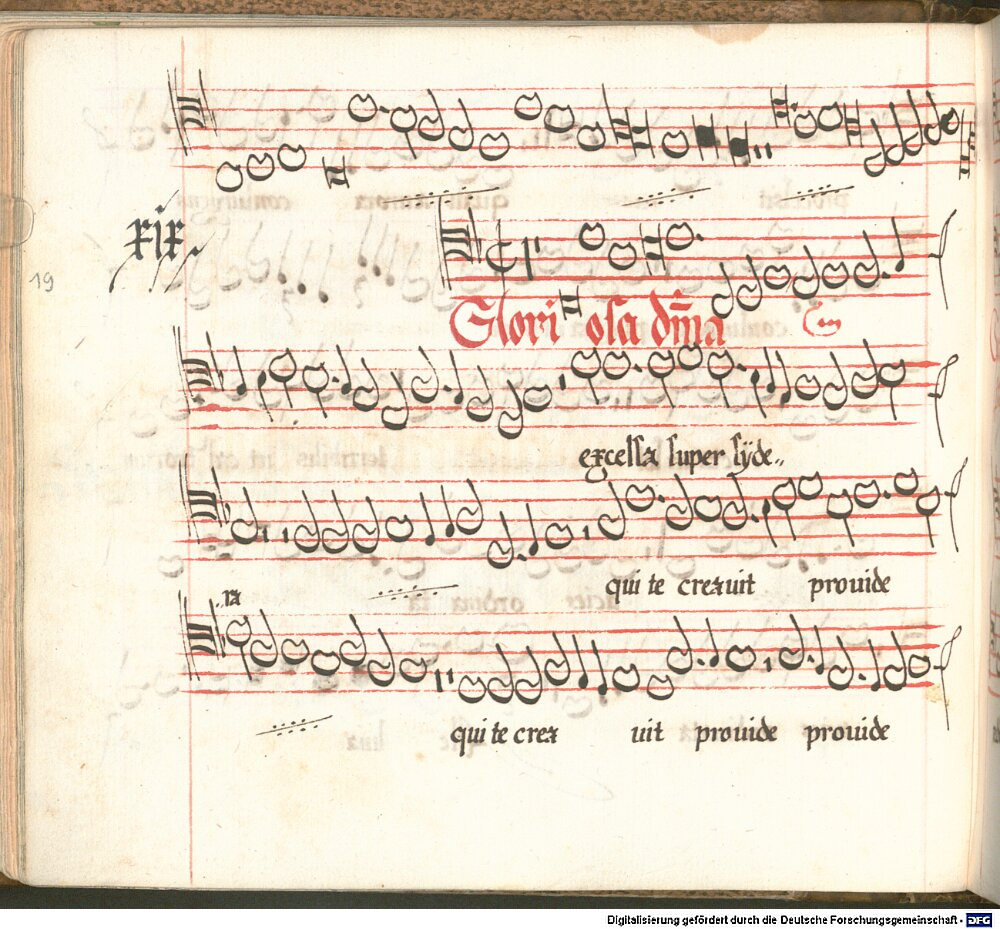 xix.
19
Glori osa dm̄a
excelsa super sÿde,,
qui te creauit prouide
ra
qui te crea uit prouide prouide
Digitalisierung gefördert durch die Deutsche Forschungsgemeinschaft - DFG